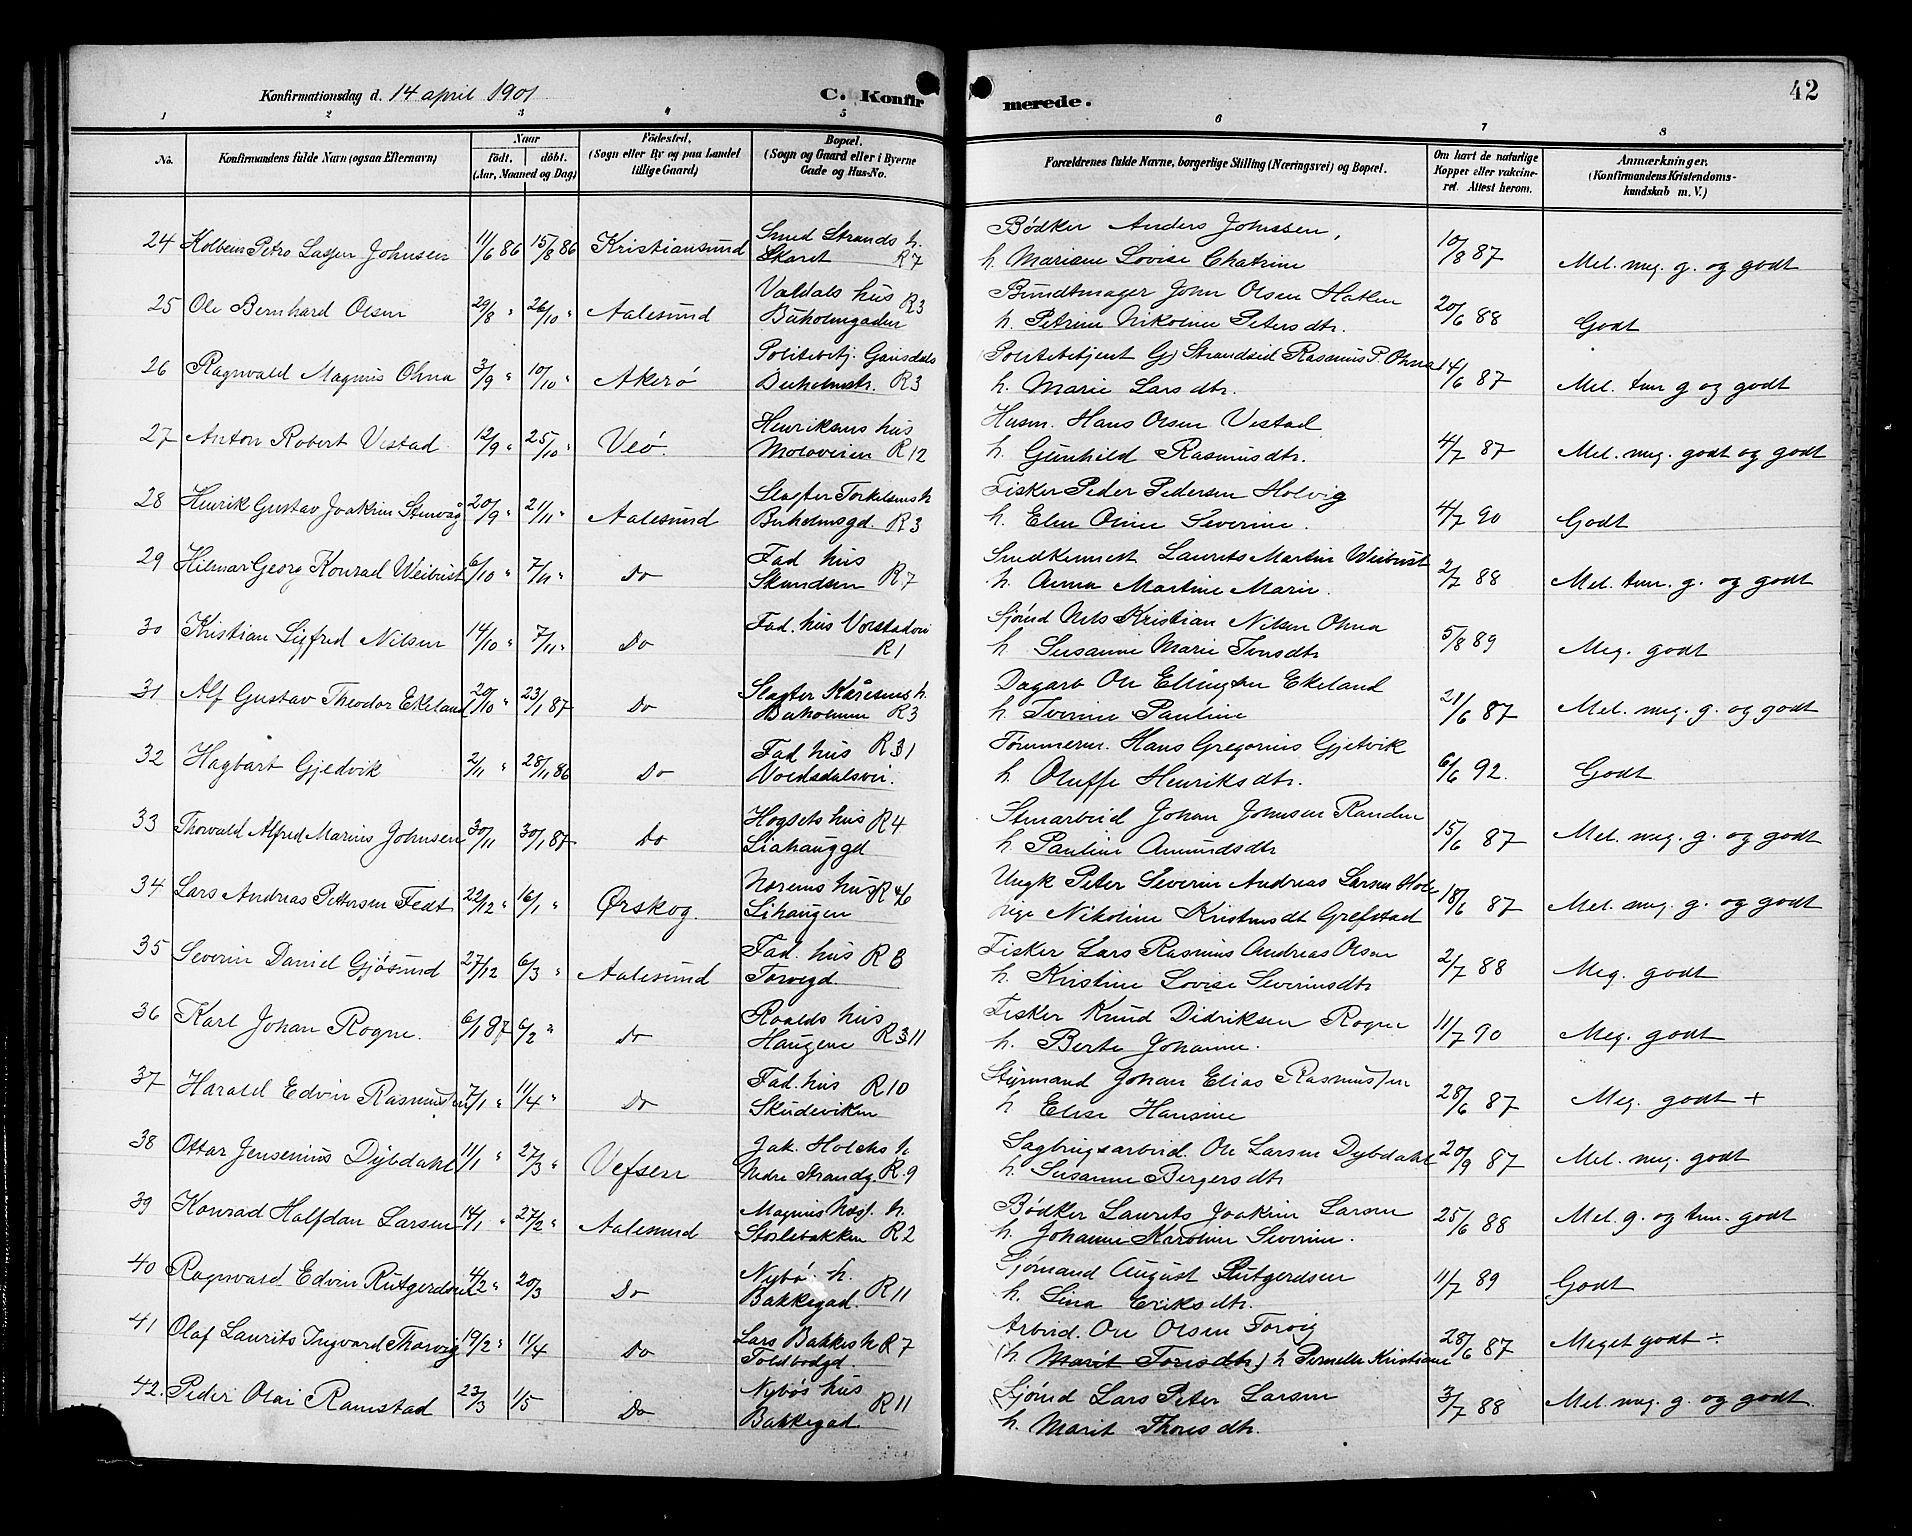 Konfirmationsdag d. 14 april 1901 C. Konfirmerede. 42
1 2 3 4 5 6 7 8
No. Konfirmandens fulde Navn (ogsaa Efternavn) Naar født. døbt. (Aar, Maaned og Dag) Födested, (Sogn eller By og paa Landet tillige Gaard) Bopæl. (Sogn og Gaard eller i Byerne Gade og Hus-No. Forældrenes fulde Navne, borgerlige Stilling (Næringsvei) og Bopæl. Om havt de naturlige Kopper eller vakcineret. Attest herom. Anmærkninger. (Konfirmandens Kristendomskundskab m. V.)
24 Petro Johnsen 11/6 86 15/8 86 Kristiansund Smed Strands h. Skaret R7 Bødker Anders Johnsen,
h. Mariane Lovise Chatrine 10/8 87 Mel. meg. g. og godt
25 Ole Bernhard Olsen 29/8 " 26/10 " Aalesund Valdals hus R3 Buholmgaden Bundtmager John Olsen Haken
h. Petrine Nikoline Petersdtr. 20/6 88 Godt
26 Ragnvald Magnus Ohna 3/9 " 10/10 " Akerø Politibetj. Gausdals Buholmstr. R3 Politibetjent G) Strandsid Rasmus P. Ohna
h. Marie Larsdtr. 14/6 87 Mel. tem g og godt
27 Anton Robert Vestad 12/9 " 25/10 " Veø. Henriksens hus Moloveien R12 Husm. Hans Olsen Vestad
h. Gunhild Rasmusdtr. 4/7 87 Mel. meg. godt og godt
28 Henrik Gustav Joakim Stenvåg 20/9 " 21/11 " Aalesund Slagter Torkelsens h Buholmgd. R3 Fisker Peder Pedersen Holvig
h. Elen Oline Severine. 4/7 90 Godt
29 Hilmar Georg Konrad Weibust 6/10 " 7/11 " Do Fad hus Skandsen R7 Laurits Martin Weibust
h. Anna Martine Marie. 2/7 88 Mel. tem. g. og godt
30 Kristian Sigfred Nilsen 14/10 " 7/11 " Do Fad. hus R1 Sjømd Nils Kristian Nilsen Ohna
h. Susanne Marie Iversdtr 5/8 89 Meg. godt
31 Alf Gustav Theodor Ekeland 20/10 " 23/1 87 Do Slagter Kåresens h. Buholmen R3 Dagarb Ole Ellingsen Ekeland
h. Iverine Pauline 21/6 87 Mel. meg. g. og godt
32 Hagbart Gjedvik 2/11 " 28/11 86 Do Fad hus Voldsdalsvei. Tømmerm. Hans Gregorius Gjetvik
h Oluffe Henriksdtr. 6/6 92. Godt
33 Thorvald Alfred Marius Johnsen 30/11 30/1 87 Do Hogsets hus R4 Liahauggd Stenarbeid Johan Johnsen Randen
h Pauline Amundsdtr 15/6 87 Mel. meg. g. og godt
34 Lars Andreas Pettersen Fedt 22/12 " 16/1 " Ørskog. Norems hus Lihaugen Ungk Peter Severin Andreas Larsen Hole
pige Nikoline Kristensdt Grefstad 18/6 87 Mel. meg. g. og godt
35 Severin Daniel Gjøsund 27/12 6/3 " Aalesund Fad. hus R8 Torvegd. Fisker Lars Rasmus Andreas Olsen
h. Kristine Lovise Severinsdtr 2/7 88 Meg. godt
36 Karl Johan Rogne. 6/1 87 6/2 " Do Roalds hus Haugene Fisker Knud Didriksen Rogne
h. Berte Johanne. 11/7 90 Meg. godt
37 Harald Edvin Rasmussen 7/1 " 11/4 " Do Fad. hus R10 Skudeviken Styrmand Johan Elias Rasmussen
h Elise Hansine 28/6 87 Meg. godt +
38 Ottar Jensenius Dybdahl 11/1 " 27/3 " Vefsen Jak. Holcks h. Nedre Strandg. R.9 Sagbrugsarbeid. Ole Larsen Dybdahl
h. Susanne Bergersdtr 20/9 87 Mel. meg. godt
39 Konrad Halfdan Larsen 14/1 " 27/2 " Aalesund Magnus h. Storlebakken R2 Bødker Laurits Joakim Larsen
h. Johanne Karoline Severine. 25/6 88 Mel. g. og tem. godt
40 Ragnvald Edvin Rutgerdsen 4/2 " 20/3 Do Nybø h. Bakkegad. R11 Sjømand August Rutgerdsen
h. Lina Eriksdtr. 11/7 89 Godt
41 Olaf Laurits Ingvard Thorvig 19/2 " 11/4 Do Lars Bakkes h R7 Toldbodgd. Arbeid. Ole Olsen Torvig
(h. Marit Toresdtr.) h Pernelle Kristiane 28/6 87 Meget godt ÷
42. Peder Olai Ramstad 23/3 1/5 Do Nybøs hus R11 Bakkegad Sjømd Lars Peter Larsen
h. Marit Thoresdtr. 3/7 88 Mel. meg. g. og godt.